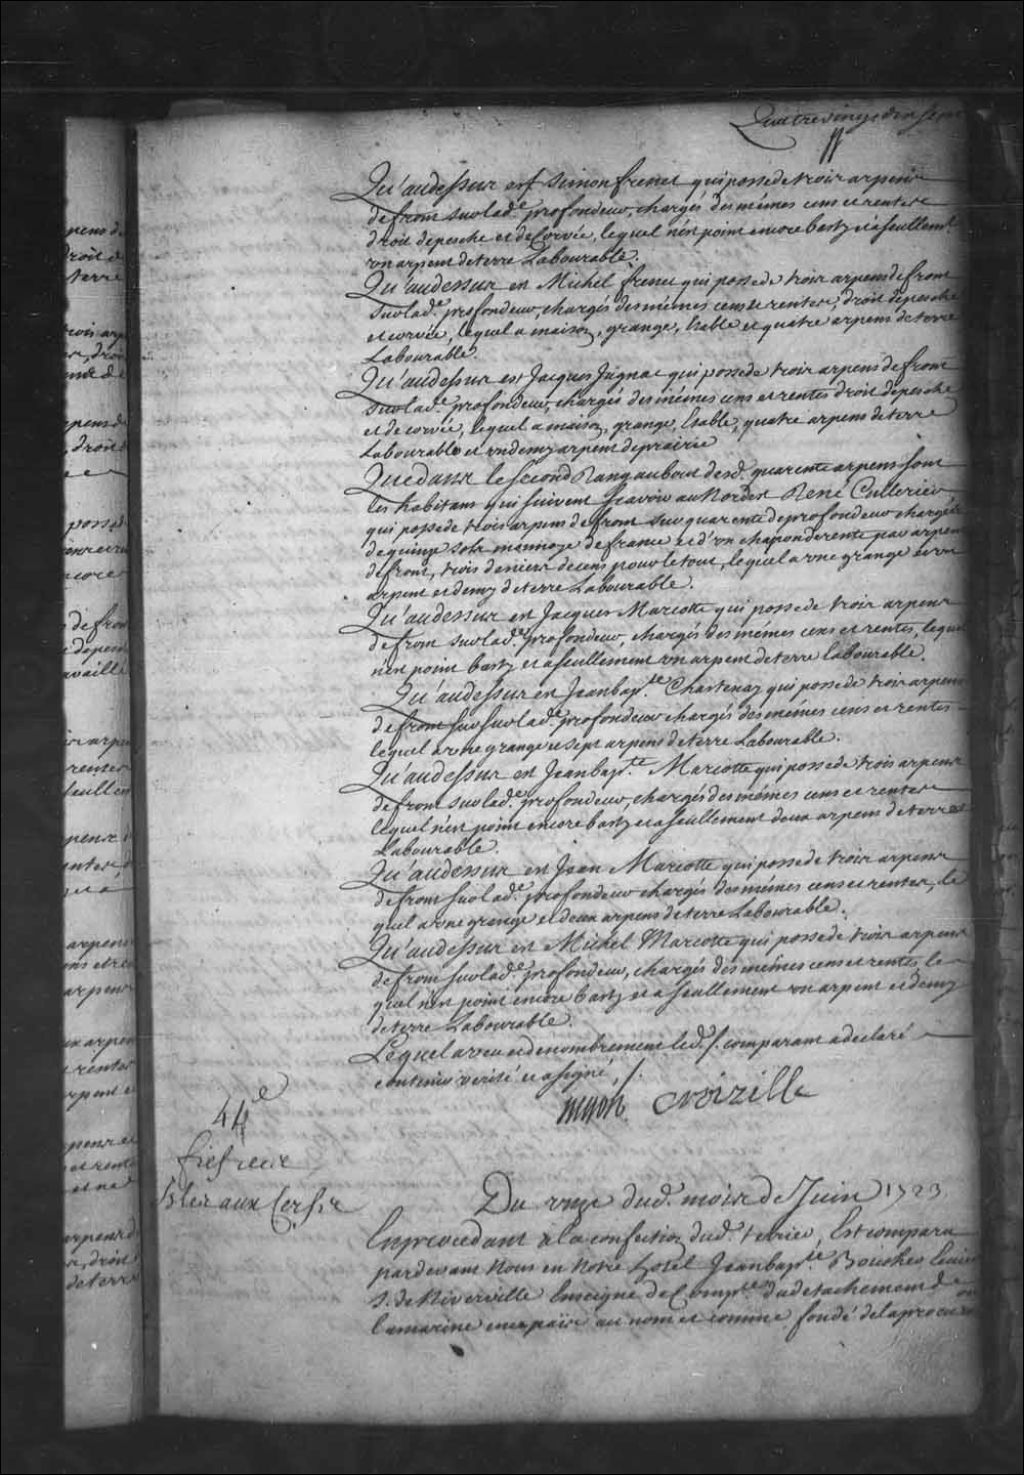 Quatrevingt dix sept
Qu'audessus est Simon frenet qui possede trois arpens
de front sur lad.e profondeur, chargés des mémes cens et rentes
droit de pesche et de Corvée, lequel n'est point encore basty et a seullemt.
un arpent de terre Labourable.
Qu'audessus est Michel frenet qui possede trois arpens de front
sur lad.e profondeur, chargés des mémes cens et rentes, droit de pesche
et corvée, lequel a maison, grange, Etable et quatre arpens de terre
Labourable.
Qu'audessus est Jacques Jugnac qui possede trois arpens de front
sur lad.e profondeur, chargés des mémes cens et rentes droit de pesche
et de corvée, lequel a maison, grange, Etable, quatre arpens de terre
Labourable et un demy arpent de prairie
Que dans le second Rang au bout desd. quarente arpens sont
les habitans qui suivent scavoir au Nordest René Cullerier
qui possede trois arpens de front sur quarente de profondeur chargés
de quinze sols monnoye de france et d'un chapon de rente par arpent
de front, trois deniers de cens pour le tout, lequel a une grange et un
arpent et demy de terre Labourable.
Qu'audessus est Jacques Marcotte qui possede trois arpens
de front sur lad.e profondeur, chargés des mémes cens et rentes, lequel
n'est point basty et a seullement un arpent de terre labourable.
Qu'audessus est Jeanbap.te Chastenay qui possede trois arpens
de front sur sur lad.e profondeur chargés des mémes cens et rentes
lequel a une grange et sept arpens de terre Labourable.
Qu'audessus est Jeanbap.te Marcotte qui possede trois arpens
de front sur lad.e profondeur, chargés des mémes cens et rentes
lequel n'est point encore basty et a seullement deux arpens de terre
Labourable.
Qu'audessus est Jean Marcotte qui possede trois arpens
de front sur lad.e profondeur chargés des mémes cens et rentes, le
quel a une grange et deux arpens de terre Labourable.
Qu'audessus est Michel Marcotte qui possede trois arpens
de front sur lad.e profondeur, chargés des mémes cens et rentes, le
quel n'est point encore basty et a seullement un arpent et demy
de terre Labourable.
Lequel aveu et denombrement led. s. comparant a declaré
contenir verité et a signé,
croizille
44e
fief
Isles aux Cerfs
Du onze dud. mois de Juin 1723
En procedant a la confection dud. terrier, Est comparu
pardevant Nous en Notre hotel Jeanbap.te Boucher Ecuier
S. de Niverville Enseigne de Comp.e du detachement de
la marine en ce païs au nom et comme fondé de la procuration